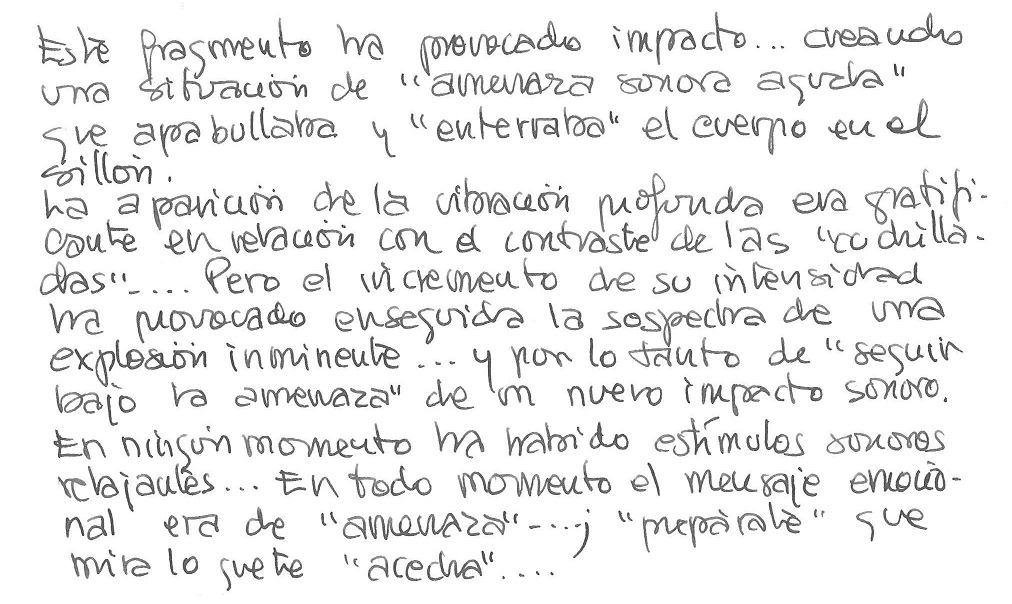 Este fragmento ha provocado impacto... creando
una situación de "amenaza sonora aguda"
que apabullaba y "enterraba" el cuerpo en el
sillón.
La aparición de la vibración profunda era gratifi-
cante en relación con el contraste de las "cuchilla-
das"-.... Pero el incremento de su intensidad
ha provocado enseguida la sospecha de una
explosión inminente... y por lo tanto de "seguir
bajo la amenaza" de un nuevo impacto sonoro.
En ningún momento ha habido estímulos sonoros
relajantes... En todo momento el mensaje emocio-
nal era de "amenaza"-...; "prepárate" que
mira lo que te "acecha"....